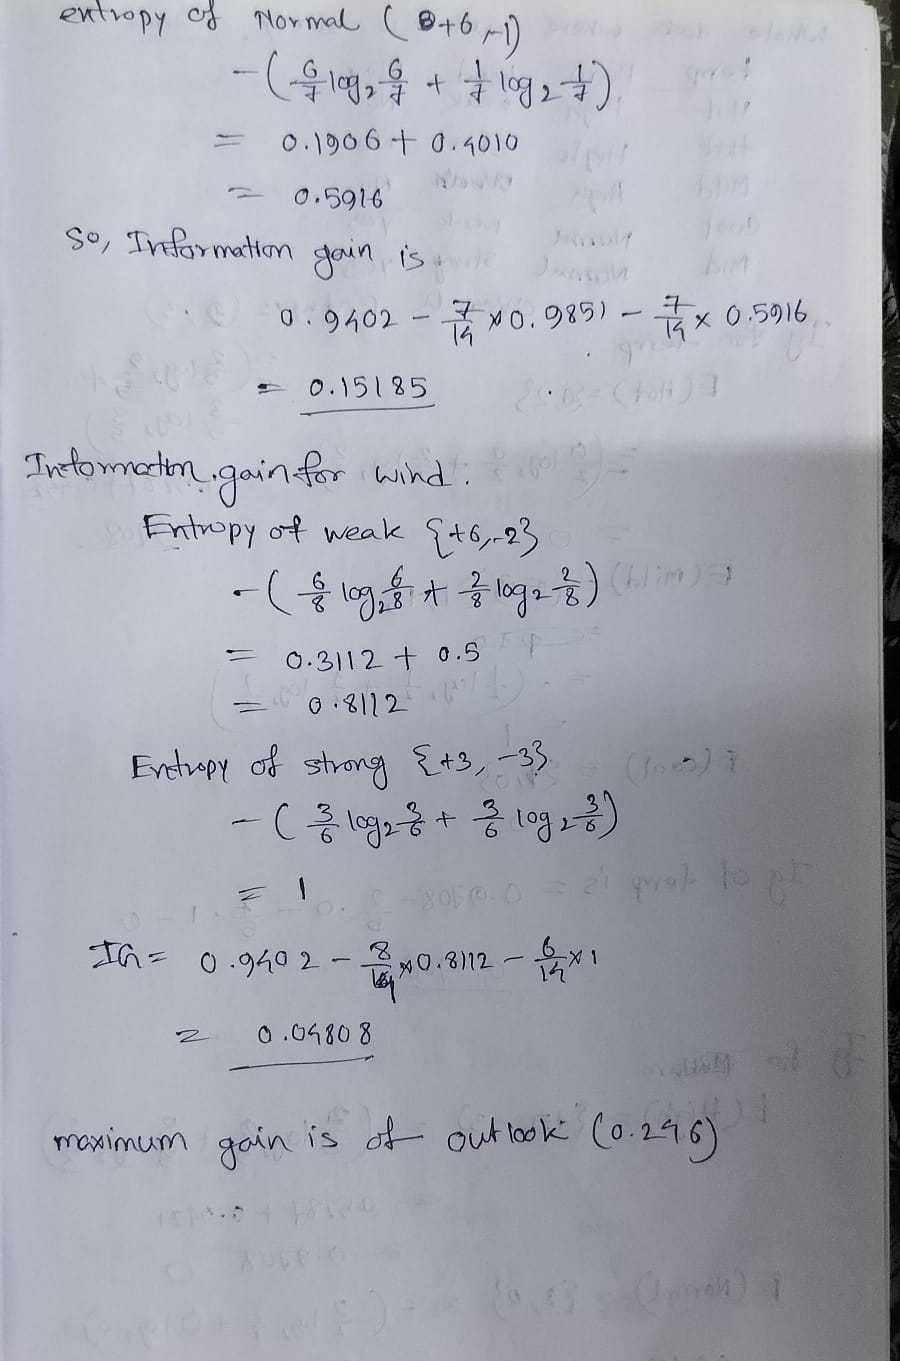 entropy of Normal (+6,-1)
-(6/7 log₂ 6/7 + 1/7 log₂ 1/7)
= 0.1906 + 0.4010
= 0.5916
So, Information gain is
0.9402 - 7/14 × 0.9851 - 7/14 × 0.5916
= 0.15185
Information gain for wind:
Entropy of weak {+6,-2}
-(6/8 log₂ 6/8 + 2/8 log₂ 2/8)
= 0.3112 + 0.5
= 0.8112
Entropy of strong {+3, -3}
-(3/6 log₂ 3/6 + 3/6 log₂ 3/6)
= 1
IG = 0.9402 - 8/14 × 0.8112 - 6/14 × 1
= 0.04808
maximum gain is of outlook (0.246)